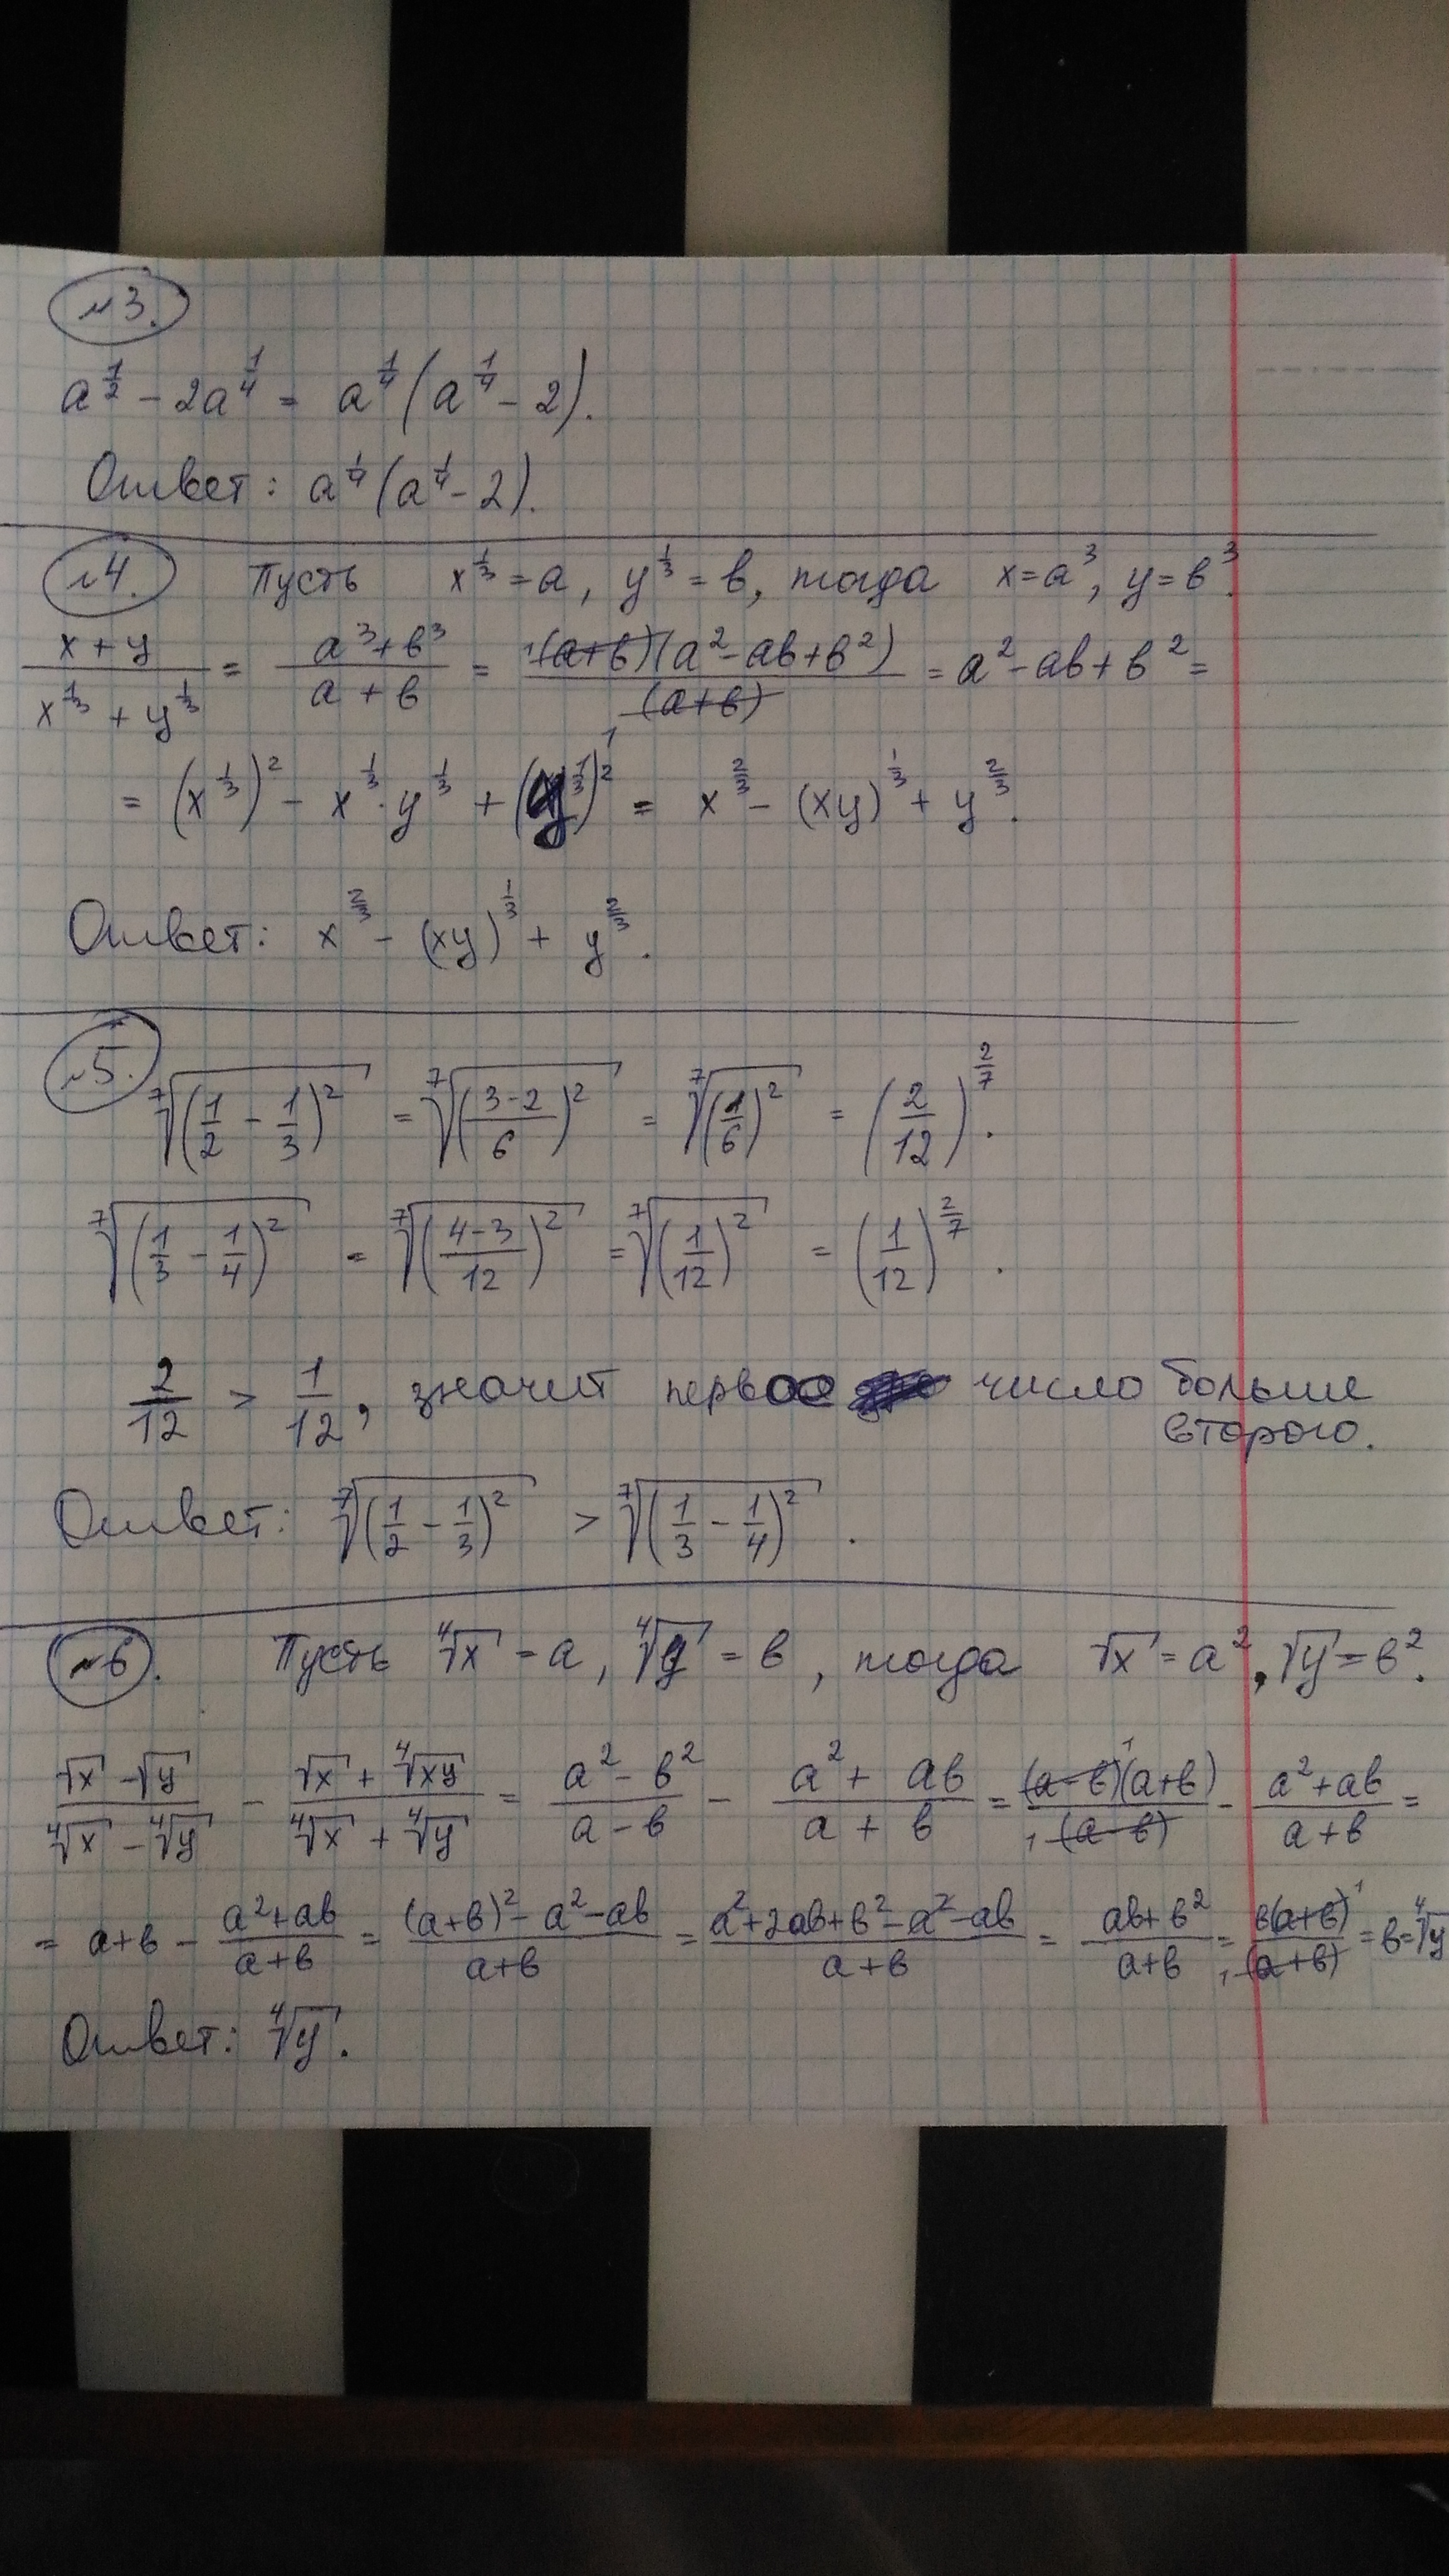 №3.
a^{1/2} - 2a^{1/4} = a^{1/4}(a^{1/4} - 2).
Ответ: a^{1/4}(a^{1/4} - 2).
№4. Пусть x^{1/3} = a, y^{1/3} = в, тогда x = a³, y = в³.
(x + y)/(x^{1/3} + y^{1/3}) = (a³ + в³)/(a + в) = (a+в)(a² - aв + в²)/(a+в) = a² - aв + в² =
= (x^{1/3})² - x^{1/3} · y^{1/3} + (y^{1/3})² = x^{2/3} - (xy)^{1/3} + y^{2/3}.
Ответ: x^{2/3} - (xy)^{1/3} + y^{2/3}.
№5.
⁷√(1/2 - 1/3)² = ⁷√((3-2)/6)² = ⁷√(1/6)² = (2/12)^{2/7}.
⁷√(1/3 - 1/4)² = ⁷√((4-3)/12)² = ⁷√(1/12)² = (1/12)^{2/7}.
2/12 > 1/12, значит первое число больше
второго.
Ответ: ⁷√(1/2 - 1/3)² > ⁷√(1/3 - 1/4)².
№6. Пусть ⁴√x = a, ⁴√y = в, тогда √x = a², √y = в².
(√x - √y)/(⁴√x - ⁴√y) - (√x + ⁴√xy)/(⁴√x + ⁴√y) = (a² - в²)/(a - в) - (a² + aв)/(a + в) = (a-в)(a+в)/(a-в) - (a²+aв)/(a+в) =
= a+в - (a²+aв)/(a+в) = ((a+в)² - a² - aв)/(a+в) = (a²+2aв+в²-a²-aв)/(a+в) = (aв+в²)/(a+в) = в(a+в)/(a+в) = в = ⁴√y
Ответ: ⁴√y.